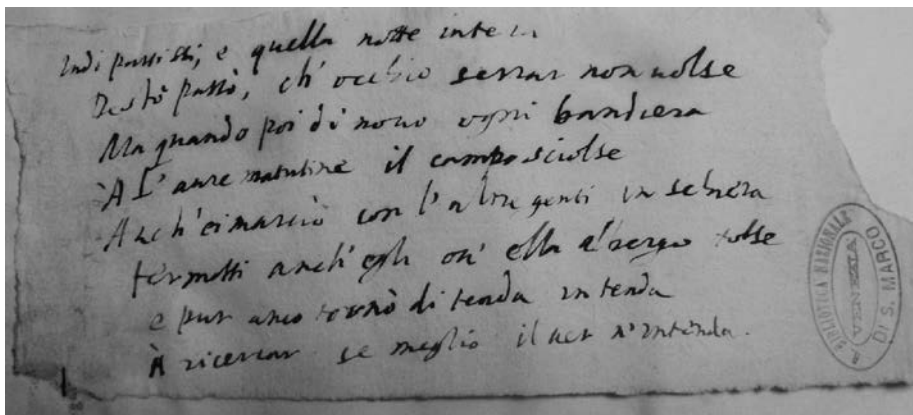 Indi partissi, e quella notte intera
Desto passò, ch'occhio serrar non uolse
Ma quando poi di nouo ogni bandiera
A l'aure matutine il campo sciolse
Anch'ei marciò con l'altre genti in schiera
fermossi anch'egli ou' ella albergo tolse
e pur anco tornò di tenda in tenda
A ricercar se meglio il uer n'intenda.
R. BIBLIOTECA NAZIONALE
VENEZIA
DI S. MARCO